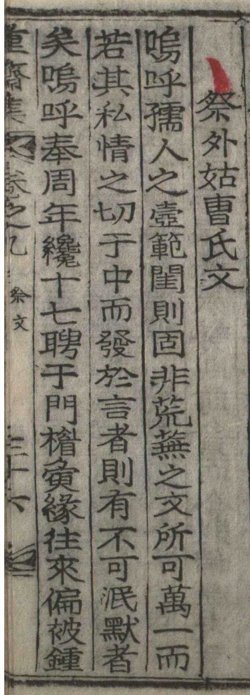 祭外姑曺氏文
嗚呼孺人之壼範閨則固非荒蕪之文所可萬一而
若其私情之切于中而發於言者則有不可泯默者
矣嗚呼奉周年纔十七聘于門楣夤緣往來偏被鍾
齋集 卷之九 祭文 三十六